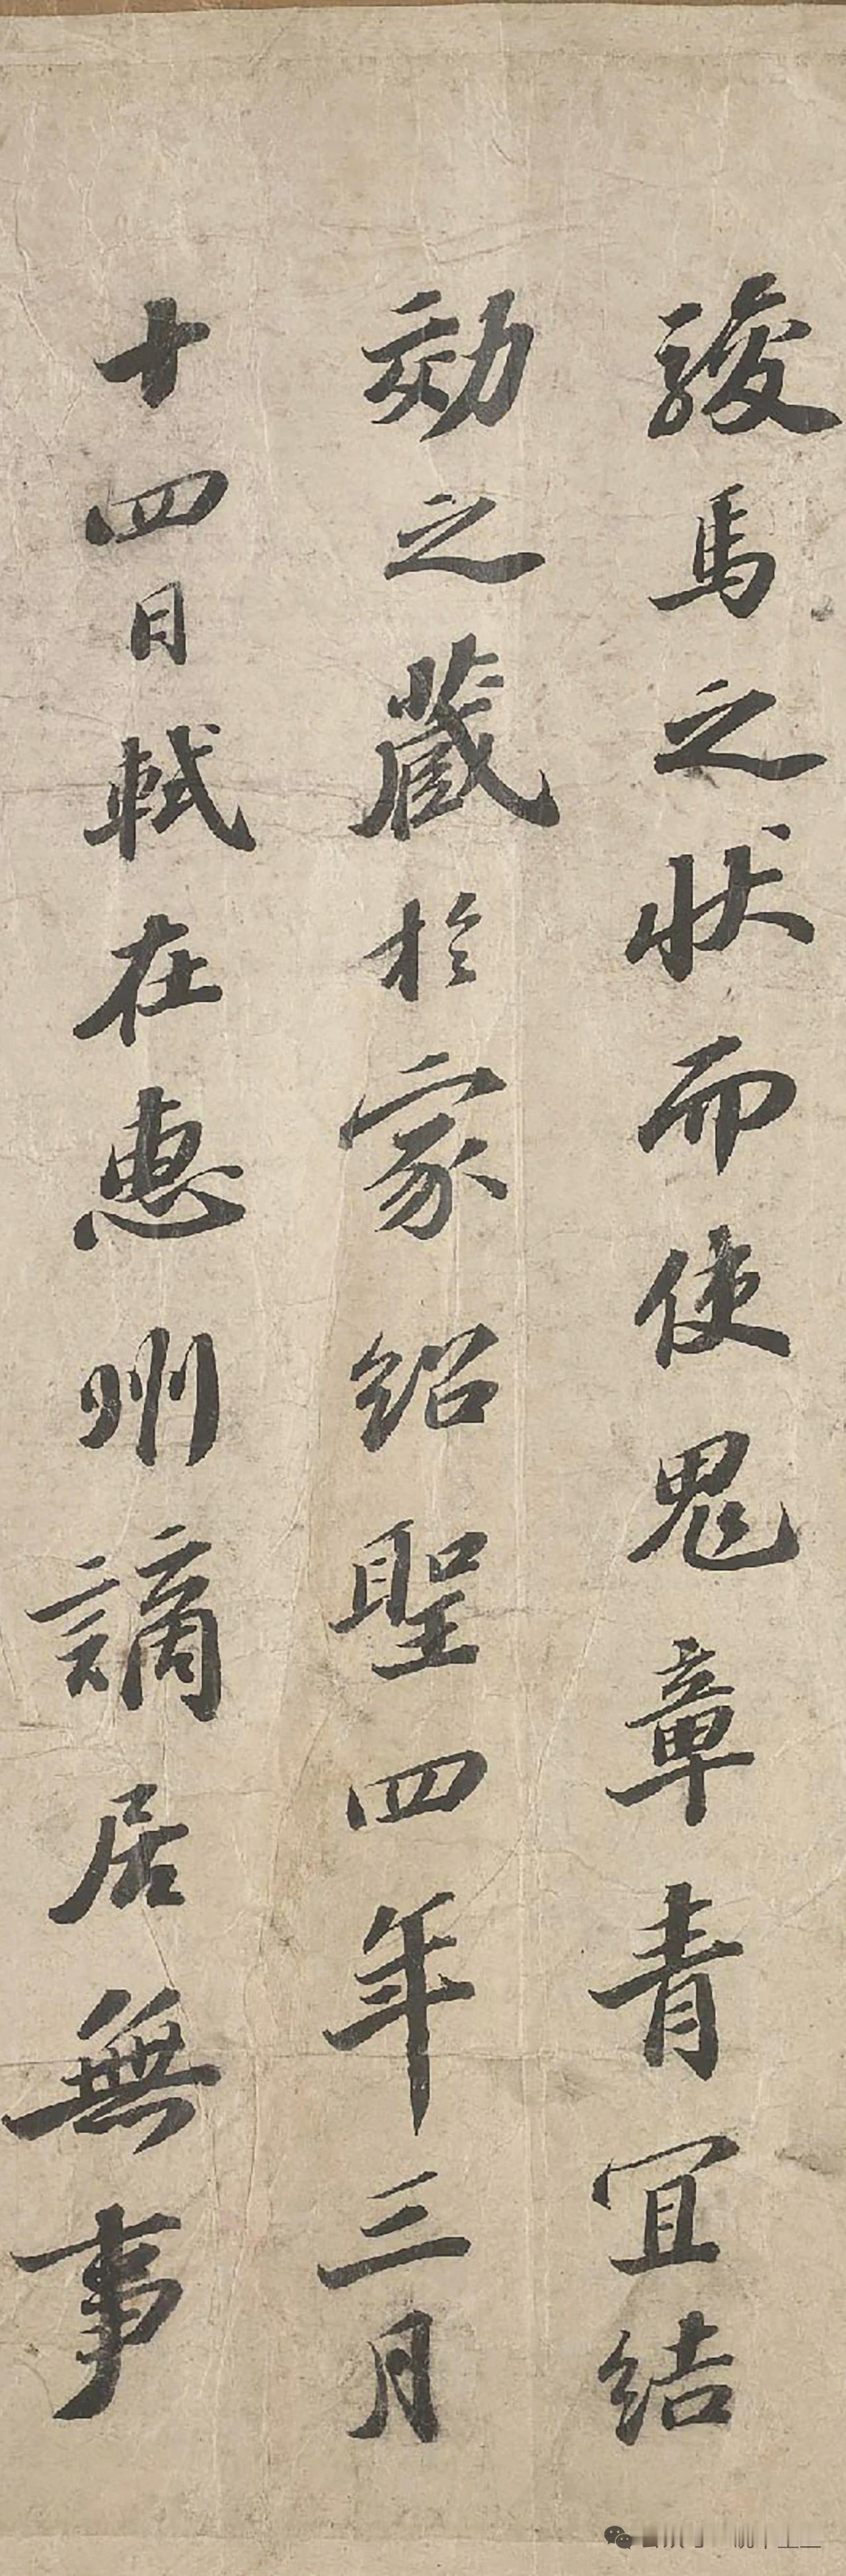 駿馬之狀而使鬼章青宜結
効之藏於家紹聖四年三月
十四日軾在惠州謫居無事